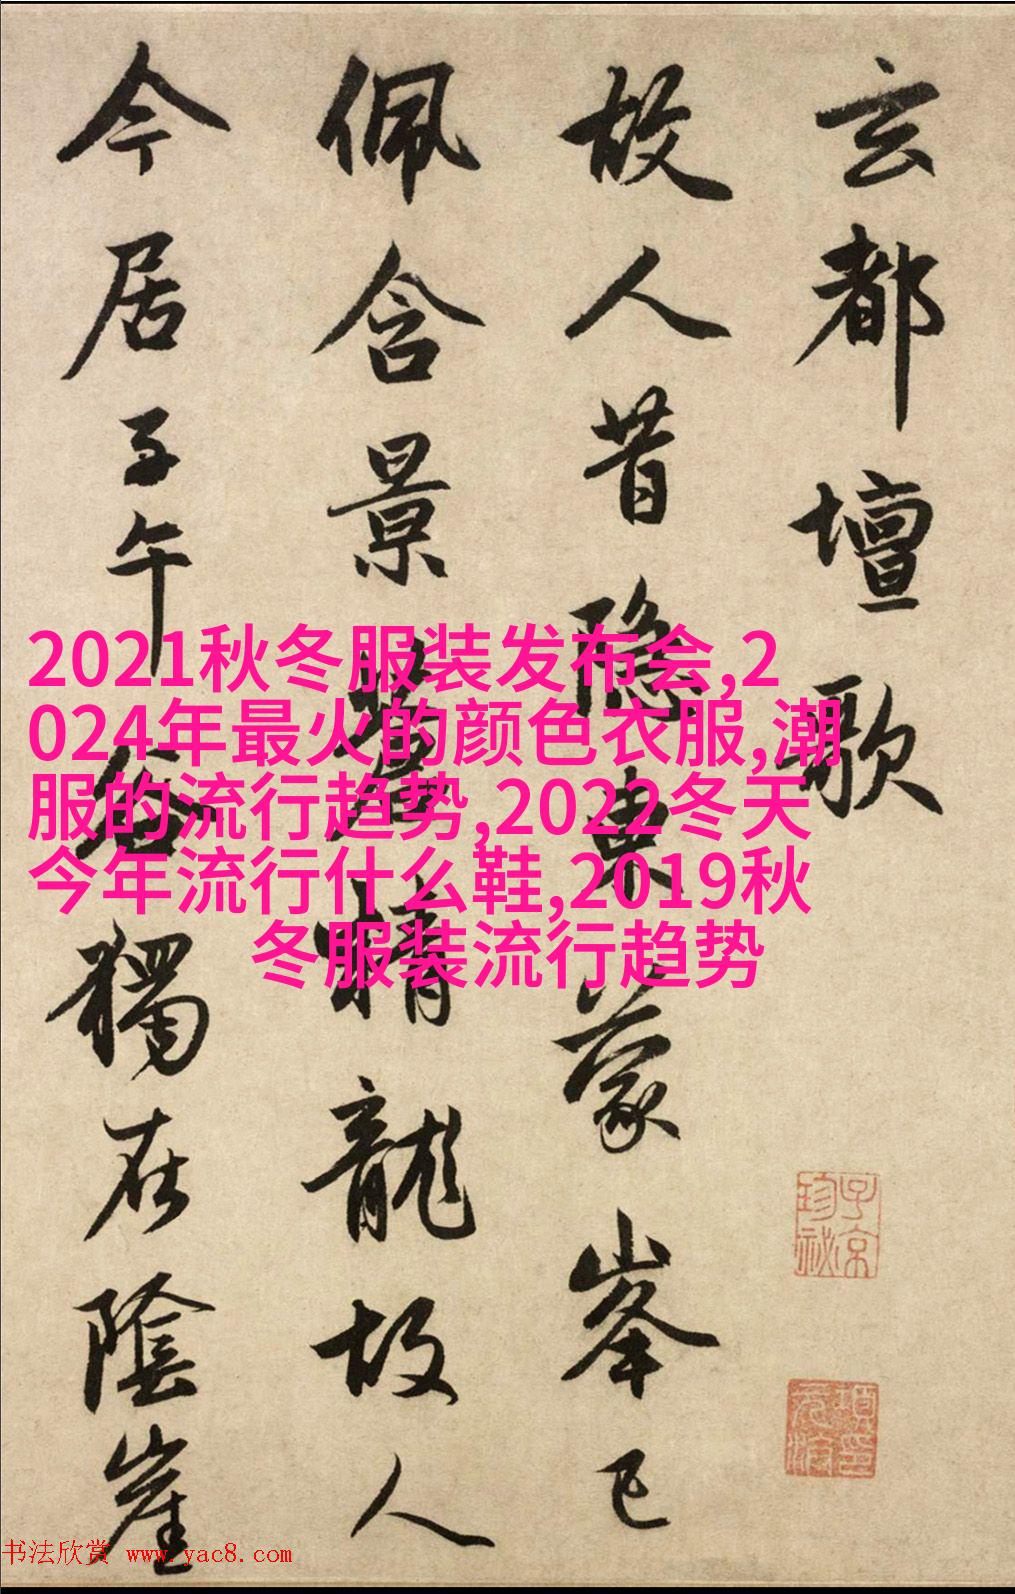 玄都壇歌
故人昔隱東蒙峯已
佩含景蒼精龍故人
今居子午谷獨在陰崖
2021秋冬服装发布会,2
024年最火的颜色衣服,潮
服的流行趋势,2022冬天
今年流行什么鞋,2019秋
冬服装流行趋势
子京
珍祕
书法欣赏 www.yac8.com